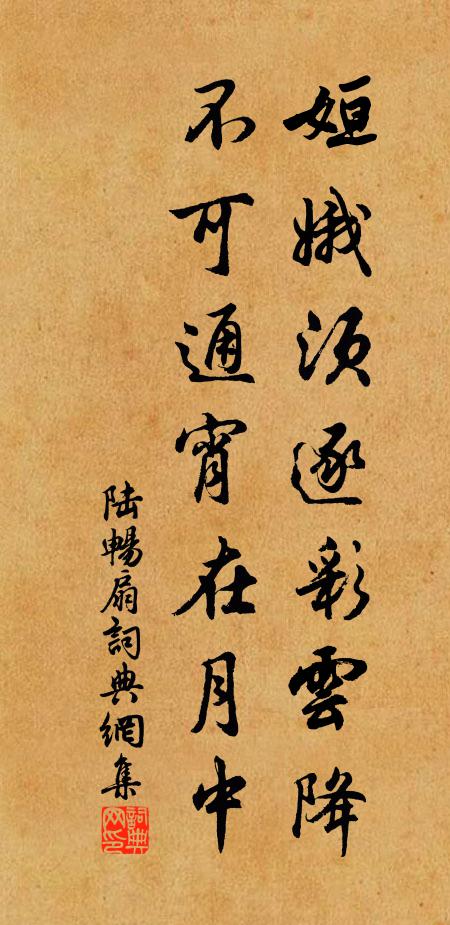 姮娥須逐彩雲降
不可通宵在月中
陸暢扇詞典網集
詞典网印